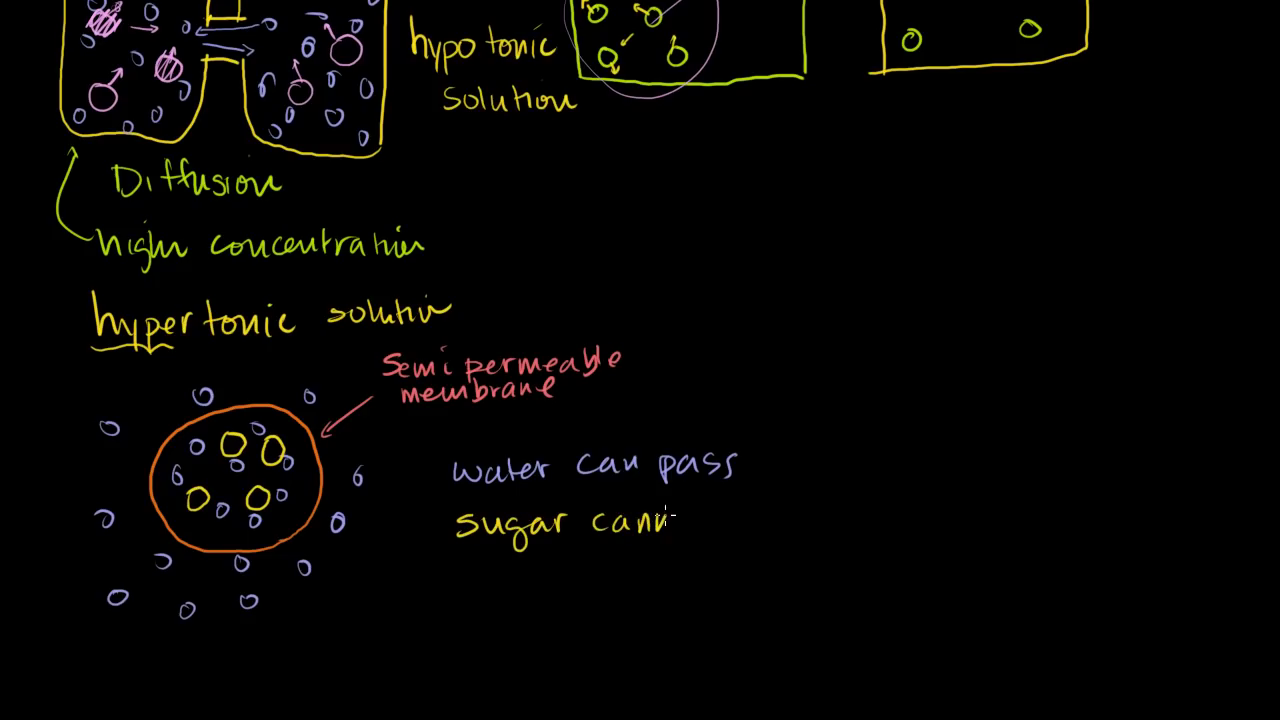 hypotonic
solution
Diffusion
high concentration
hypertonic solution
Semi permeable
membrane
water can pass
sugar cann